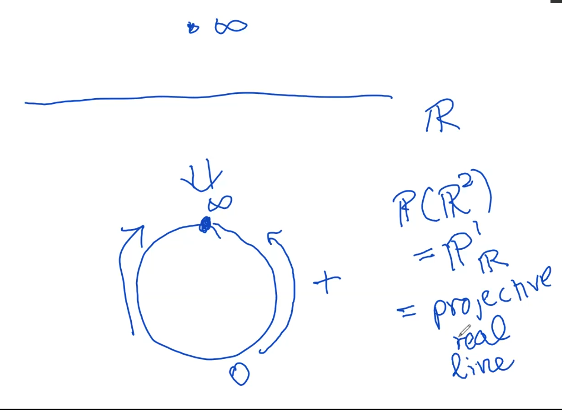 ∞
ℝ
∞
ℙ(ℝ²)
= ℙ¹_ℝ
+
= projective
real
line
0